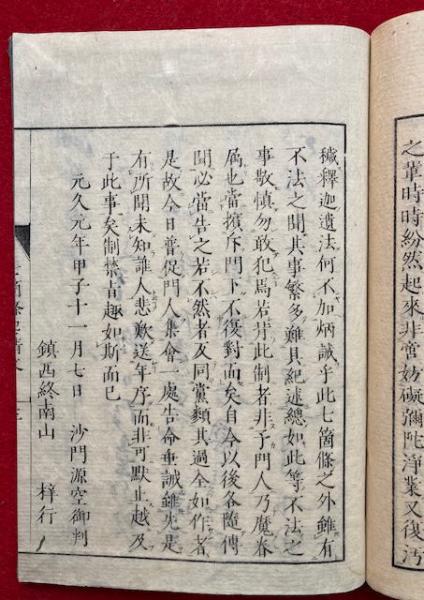 之輩時時紛然起來非啻妨礙彌陀淨業又復汚
穢釋迦遺法何不加炳誡乎此七箇條之外雖有
不法之聞其事繁多難具紀述總如此等不法之
事敬慎勿敢犯焉若背此制者非予門人乃魔眷
屬也當擯斥門下不復對面矣自今以後各隨傳
聞必當告之若不然者及同黨類其過全如作者
是故今日普促門人集會一處告命垂誡雖先是
有所聞未知誰人悲歎送年序而非可默止越及
于此事矣制禁旨趣如斯而已
元久元年甲子十一月七日 沙門源空御判
鎮西終南山 梓行